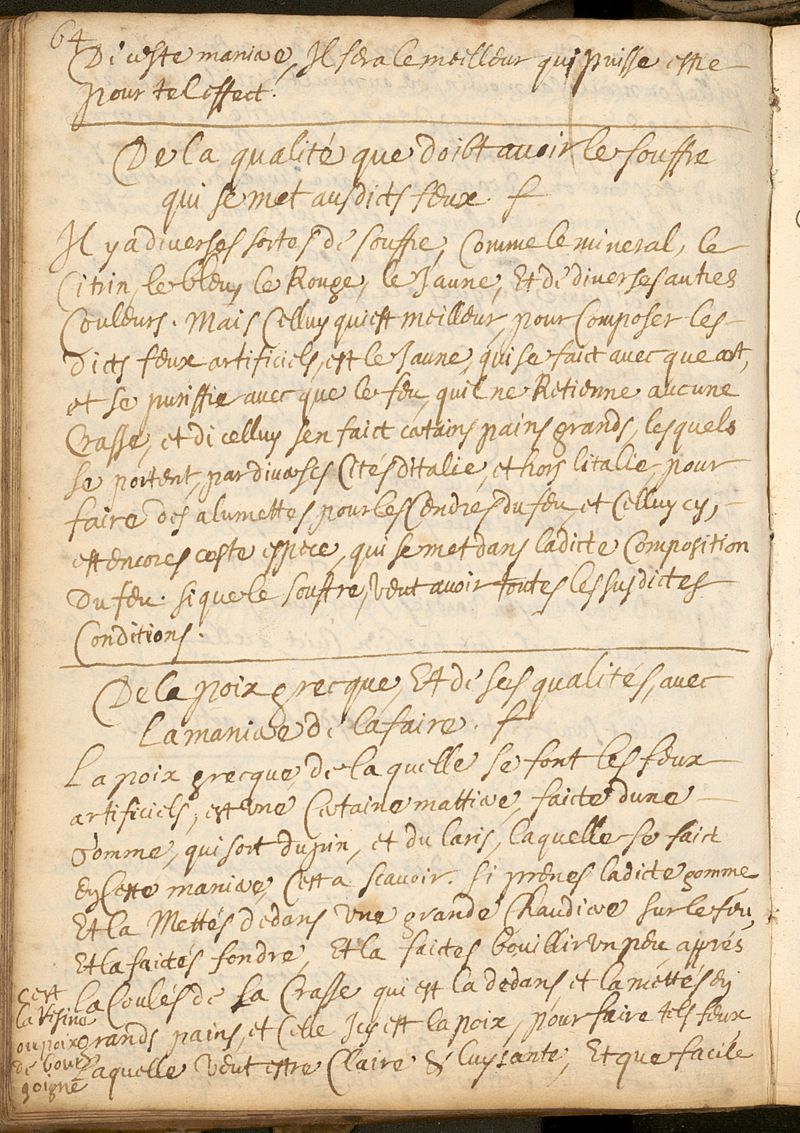 64
Di ceste maniere, Il sera le meilleur qui puisse estre
pour tel effect.
De la qualité que doibt avoir le souffre
qui se met ausdicts feux. f
Il y a diverses sortes de souffre, Comme le mineral, le
Citrin, le bleu, le Rouge, le Jaune, Et de diverses autres
Couleurs. Mais Celluy qui est meilleur, pour Composer les
dicts feux artificiels, est le Jaune, qui se faict avec que art,
et se puriffie avec que le feu, quil ne Retienne aucune
Crasse, et dicelluy sen faict certains pains grands, lesquels
se portent, par diverses Cités ditalie, et hors litalie, pour
faire des alumettes pour les Cendres du feu, et Celluy cy,
est encores ceste espece, qui se met dans ladicte Composition
du feu. si que le souffre, veut avoir toutes les susdictes
Conditions.
De la poix grecque, Et de ses qualités, avec
La maniere de la faire. f
La poix grecque, de la quelle se font les feux
artificiels, est une Certaine mattiere, faicte dune
gomme, qui sort du pin, et du laris, laquelle se faict
en Ceste maniere, Cest a scavoir. Si prenes ladicte gomme
Et la Mettés dedans une grande Chaudiere sur le feu,
Et la faictes fondre, Et la faictes bouillir un peu, apprés
la Coulés de la Crasse qui est la dedans et la mettés en
grands pains, et Celle Icy est la poix, pour faire tels feux
laquelle veut estre Claire & luysante, Et que facile
Cest
la Resine
ou poix
de bour
goigne